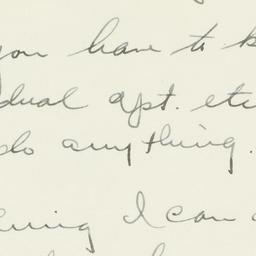 you have to
dual apt. etc
do anything.
I can